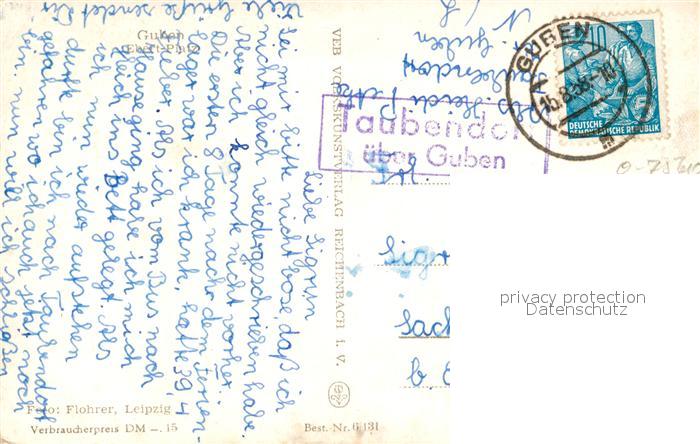 Guben
Ebert-Platz
Liebe Sigrun
Sei mir bitte nicht böse, daß ich
nicht gleich wiedergeschrieben habe.
Aber ich konnte nicht vorher.
Die ersten 8 Tage nach dem Ferien-
lager war ich krank, hatte 39,4
Fieber. Als ich vom Bus nach
Hause ging, habe ich mich
gleich ins Bett gelegt. Als
ich nun wieder aufstehen
durfte bin ich nach Taubendorf
gefahren wo ich auch jetzt noch
bin. nun will ich schließen
Viele Grüße sendet Dir
Abs. Heidi
Taubendorf
Kr. Guben
N/L
VEB VOLKSKUNSTVERLAG REICHENBACH i. V.
Taubendor
über Guben
GUBEN
16.8.58-10
10
DEUTSCHE
DEMOKRATISCHE REPUBLIK
Sigr
Sach
b.
privacy protection
Datenschutz
Foto: Flohrer, Leipzig
Verbraucherpreis DM -.15
Best.-Nr. 6 131